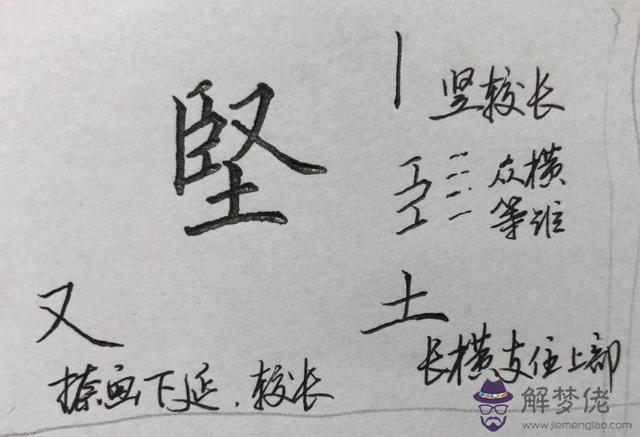 堅
丨 竖较长
众横
等距
又
捺画下延.较长
土
长横支住上部
解梦佬
www.jiemenglao.com